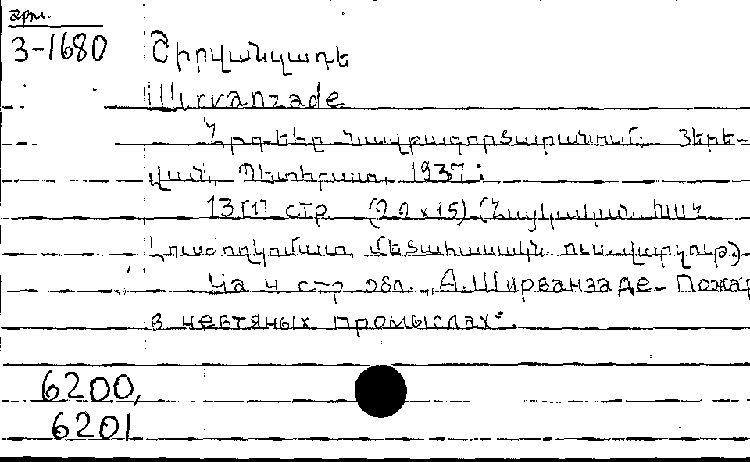 3-1680 Շիրվանզադե
Shirvanzade
Հրդեհը նավթագործարանում. Յերե-
վան, Պետհրատ, 1937:
стр. (22x15) (Հայկական ԽՍՀ
Լուսժողկոմատ,
На 4 стр обл. „А.Ширванзаде- Пожар
в нефтяных промыслах".
6200,
6201